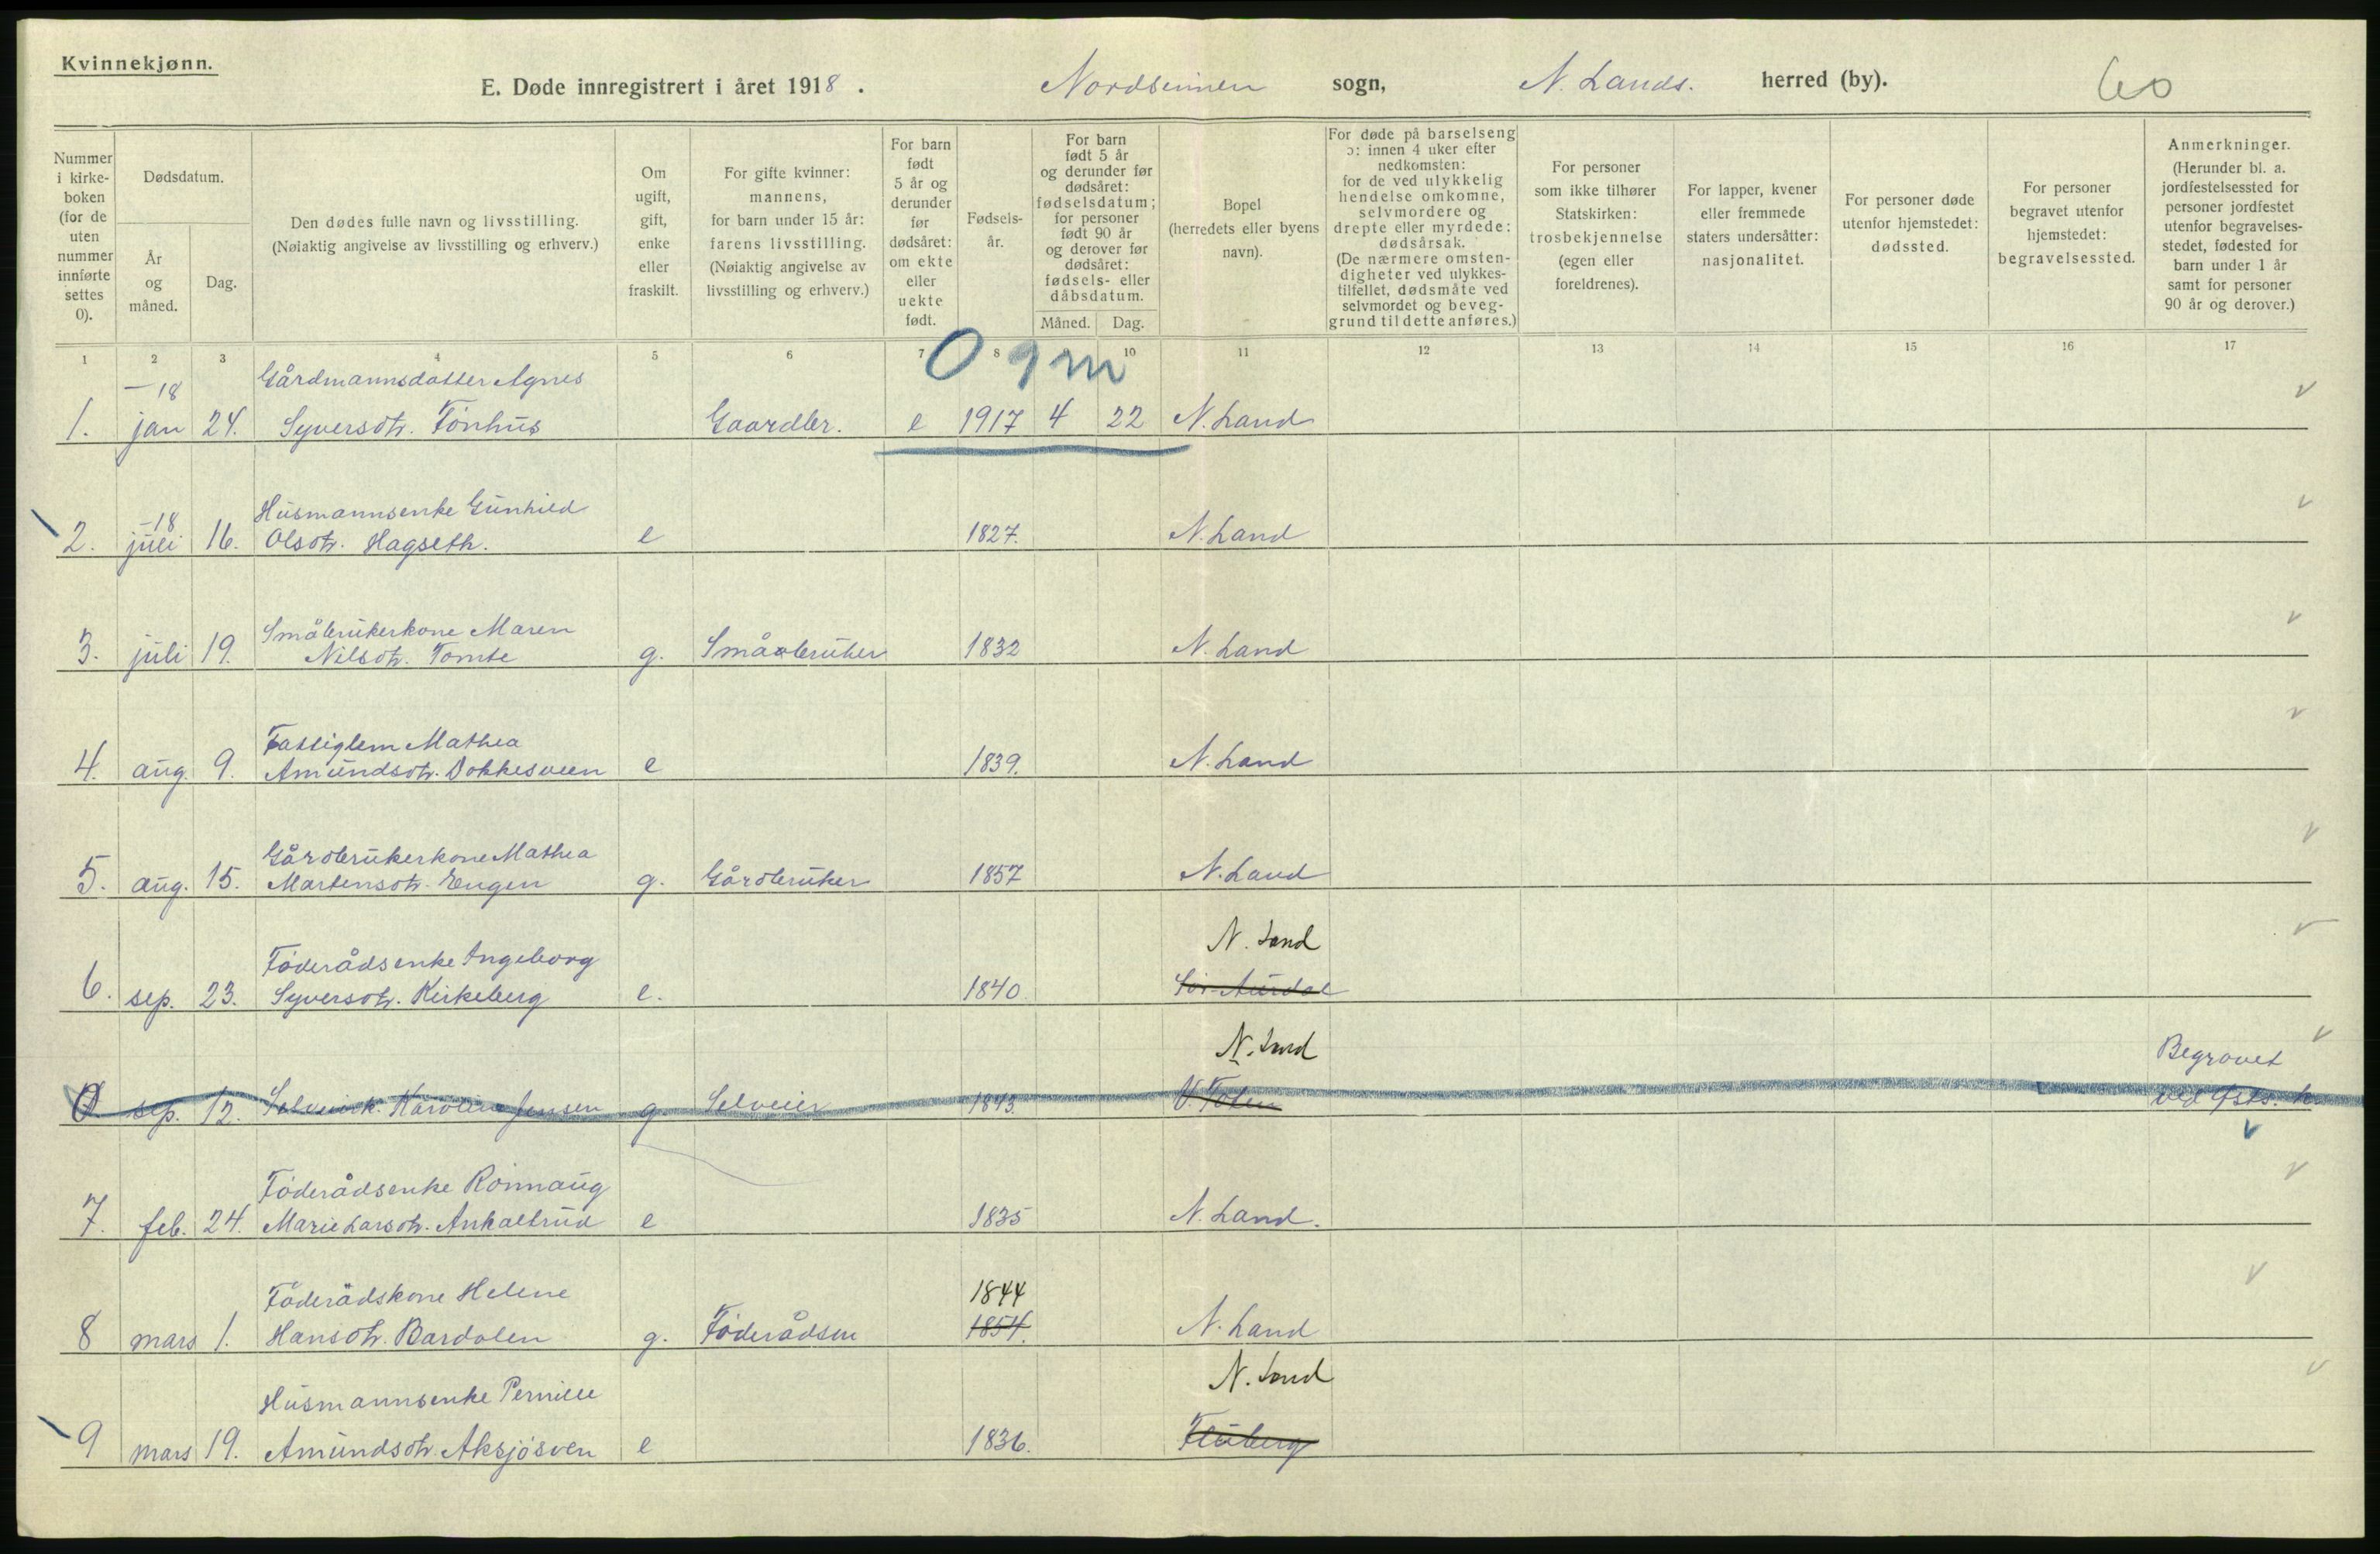 Kvinnekjønn.
E. Døde innregistrert i året 1918. Nordsinnen sogn, N. Lands. herred (by). 60
Nummer i kirke- boken (for de uten nummer innførte settes 0).
Dødsdatum.
År og måned.
Dag.
Den dødes fulle navn og livsstilling.
(Nøiaktig angivelse av livsstilling og erhverv.)
Om ugift, gift, enke eller fraskilt.
For gifte kvinner: mannens, for barn under 15 år: farens livsstilling. (Nøiaktig angivelse av livsstilling og erhverv.)
For barn født 5 år og derunder før dødsåret: om ekte eller uekte født.
Fødsels- år.
For barn født 5 år og derunder før dødsåret: fødselsdatum; for personer født 90 år og derover før dødsåret: fødsels- eller dåbsdatum.
Måned. Dag.
Bopel (herredets eller byens navn).
For døde på barselseng ɔ: innen 4 uker efter nedkomsten: for de ved ulykkelig hendelse omkomne, selvmordere og drepte eller myrdede: dødsårsak. (De nærmere omsten- digheter ved ulykkes- tilfellet, dødsmåte ved selvmordet og beveg- grund til dette anføres.)
For personer som ikke tilhører Statskirken: trosbekjennelse (egen eller foreldrenes).
For lapper, kvener eller fremmede staters undersåtter: nasjonalitet.
For personer døde utenfor hjemstedet: dødssted.
For personer begravet utenfor hjemstedet: begravelsessted.
Anmerkninger. (Herunder bl. a. jordfestelsessted for personer jordfestet utenfor begravelses- stedet, fødested for barn under 1 år samt for personer 90 år og derover.)
1 2 3 4 5 6 7 8 9 10 11 12 13 14 15 16 17
0 9 m
-18 Gårdmannsdatter Agnes
1. jan 24. Syversdtr. Tønhus Gaardbr. e 1917 4 22 N. Land
-18 Husmannsenke Gunhild
2. juli 16. Olsdtr. Hagseth. e 1827. N. Land
Småbrukerkone Maren
3. juli 19. Nilsdtr. Tomte g. Småbruker 1832 N. Land
Fattiglem Mathea
4. aug. 9. Amundsdtr. Dokkesveen e 1839. N. Land
Gårdbrukerkone Mathea
5. aug. 15. Martensdtr. Engen g. Gårdbruker 1857 N. Land
Föderådsenke Ingeborg N. Land
6. sep. 23. Syversdtr. Kirkeberg e. 1840. Sör-Aurdal
N. Land Begravet
0 sep. 12. Selveierk. Karoline Jensen g. Selveier 1843. V. Toten
Föderådsenke Rönnaug
7. feb. 24. Marie Larsdtr. Ankaltrud e 1835 N. Land.
Föderådskone Helene 1844
8 mars 1. Hansdtr. Bardalen g. Föderådsm 1854. N. Land
Husmannsenke Pernille N. Land
9 mars 19. Amundsdtr. Aksjösven e 1836. Fluberg